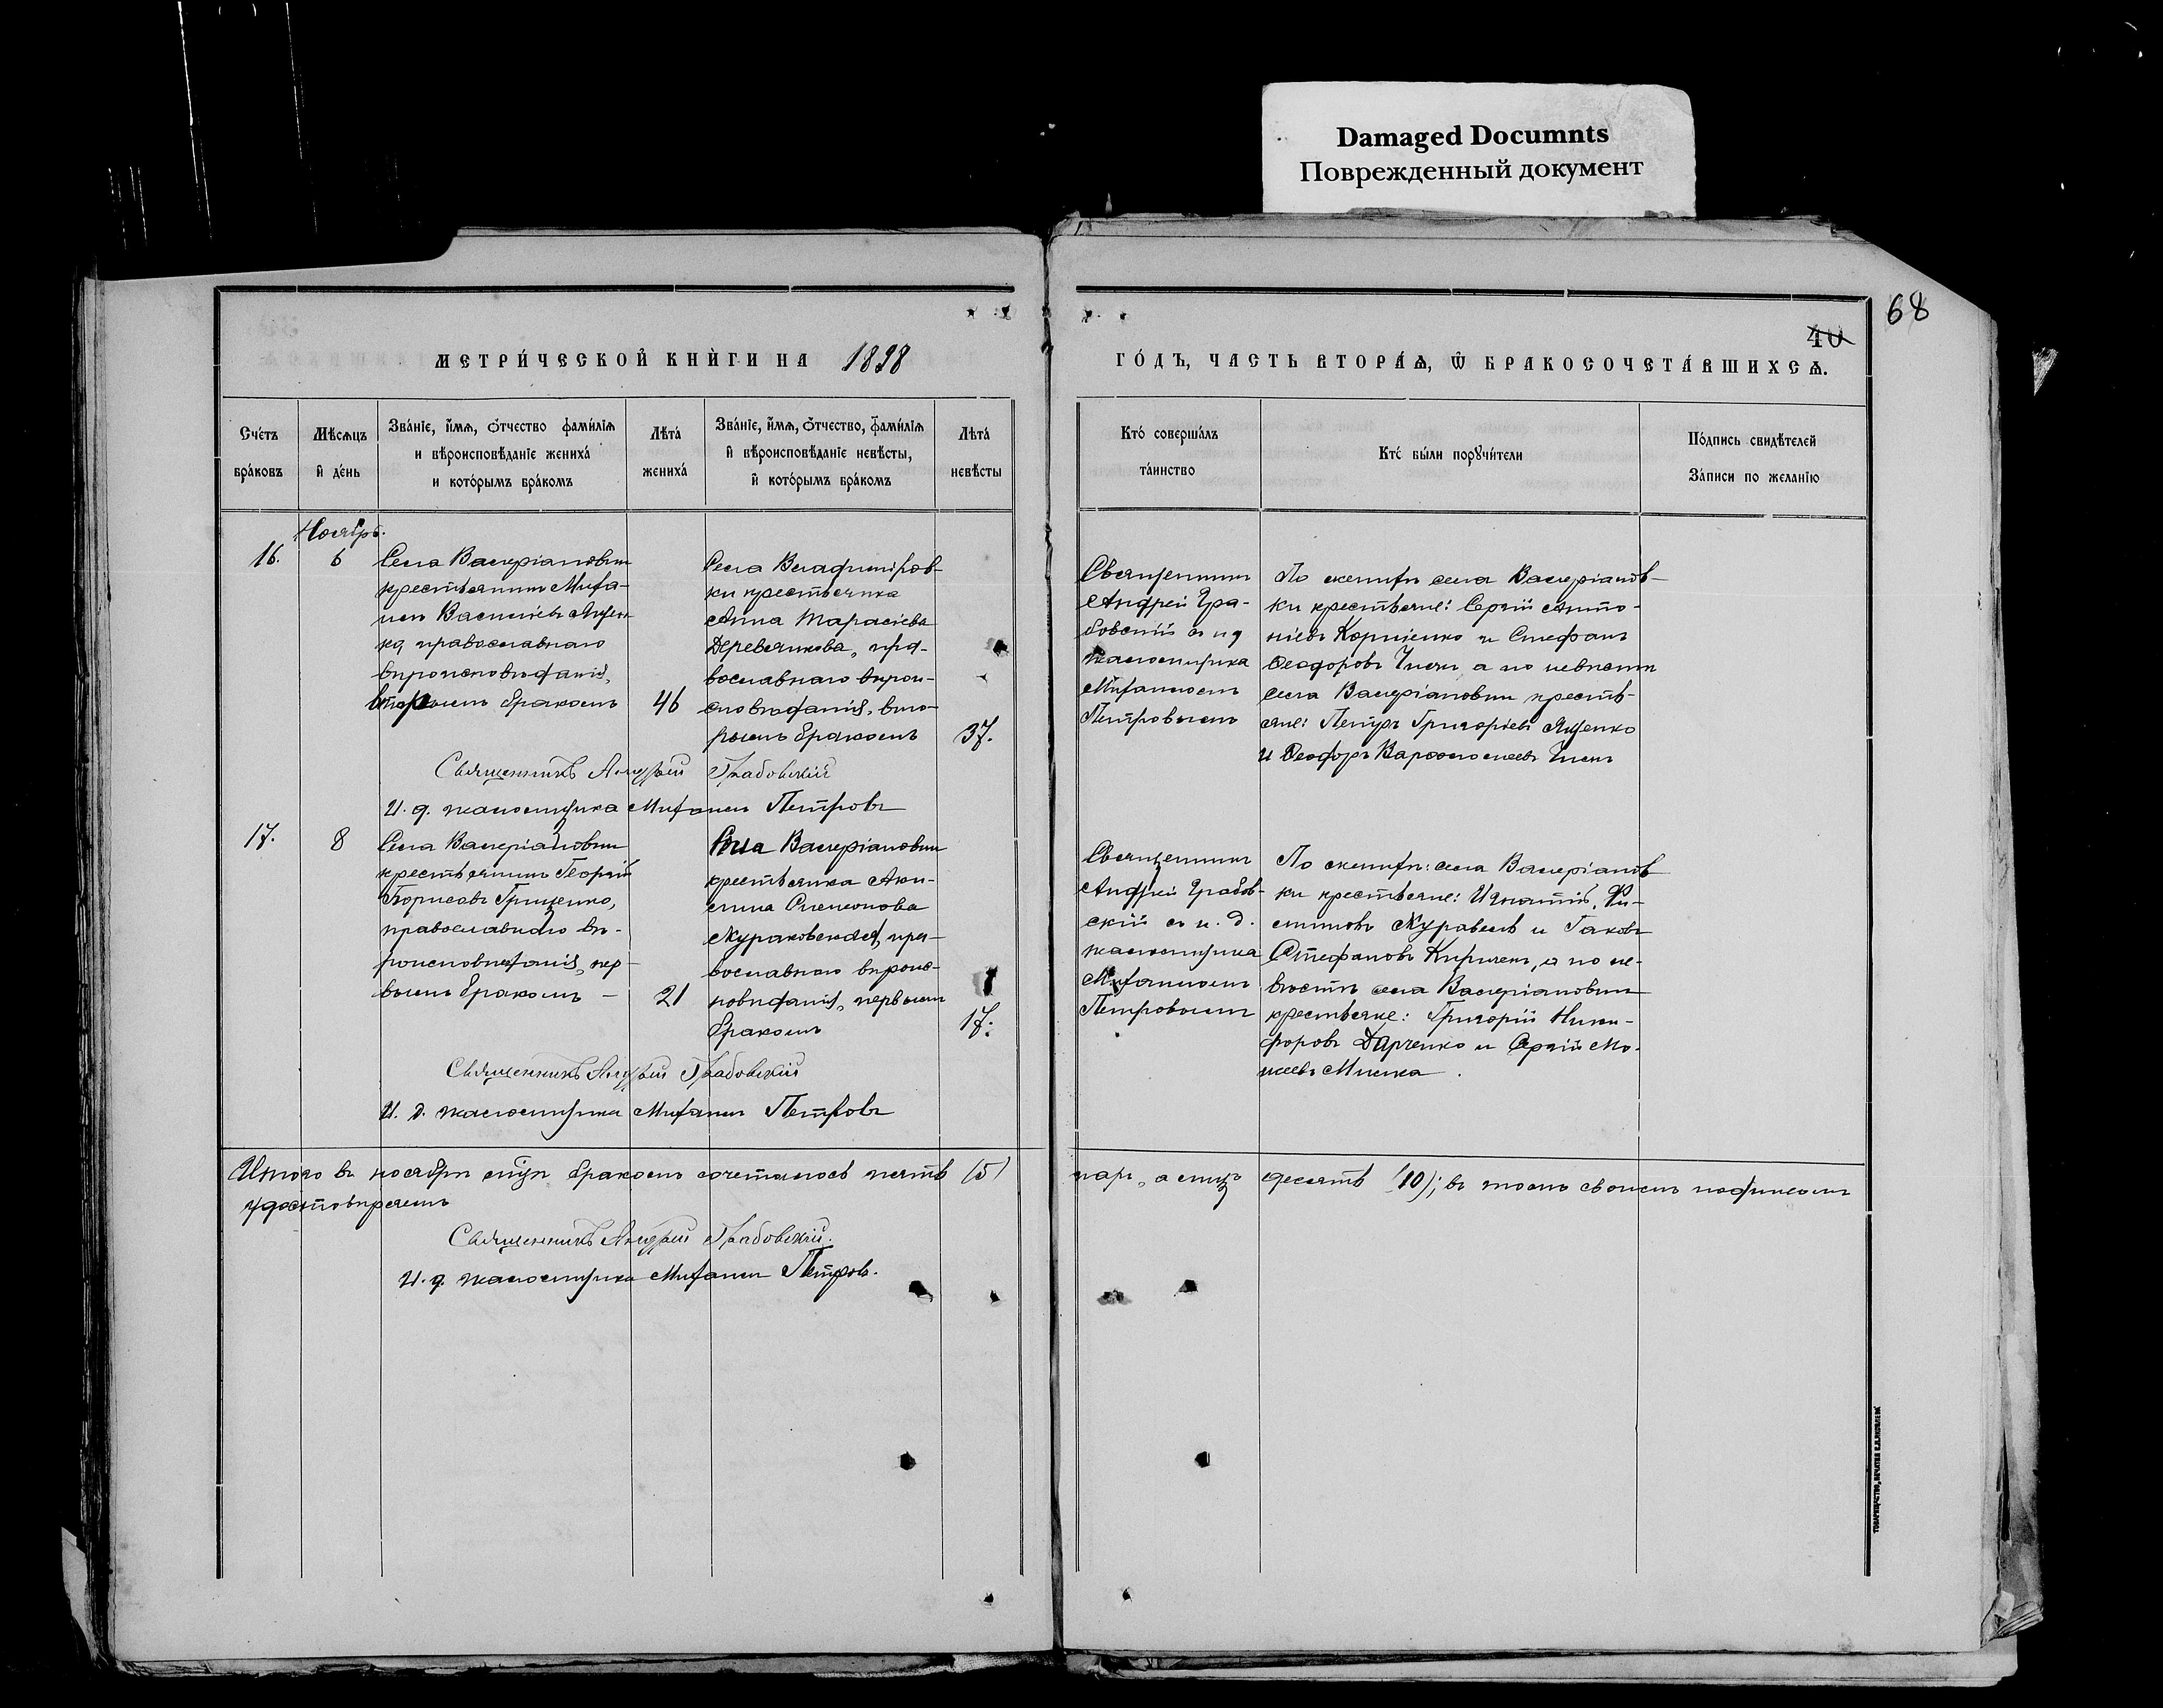 Damaged Documnts
Поврежденный документ
68
40
МЕТРИ́ЧЕСКОЙ КНИ́ГИ НА 1898
ГО́ДЪ, ЧАСТЬ ВТОРА́Ѧ, Ѽ БРАКОСОЧЕТА́ВШИХСѦ.
Сче́тъ бра́ковъ
Мѣ́сѧцъ и҆ де́нь
Зва́нїе, и҆́мѧ, ѻ҆́тчество фами́лїѧ и вѣроисповѣ́данїе жениха́ и кото́рымъ бра́комъ
Лѣта́ жениха́
Зва́нїе, и҆́мѧ, ѻ҆́тчество, фами́лїѧ и҆ вѣроисповѣ́данїе невѣ́сты, и҆ кото́рымъ бра́комъ
Лѣта́ невѣ́сты
Кто́ соверша́лъ та́инство
Кто́ бы́ли порꙋчи́тели
По́дпись свидѣ́телей За́писи по жела́нїю
Ноябрь.
16.
6
Села Валеріановки
крестьянинъ Митро-
Василіевъ Ящен-
ко, православнаго
вѣроисповѣданія,
вторымъ бракомъ
46
Села Владимиров-
ки крестьянка
Анна Тарасіева
Деревянкова, пра-
вославнаго вѣрои-
сповѣданія, вто-
рымъ бракомъ
37.
Священникъ
Андрей Гра-
бовскій съ и д
псаломщика
Митрофаномъ
Петровымъ
По женихѣ села Валеріанов-
ки крестьяне: Сергій Анто-
ніевъ Корніенко и Стефанъ
Ѳеодоровъ а по невѣстѣ
села Валеріановки кресть-
яне: Петръ Григоріевъ Ященко
и Ѳеодоръ Варѳоломеевъ
Священникъ Андрей Грабовскій
И. д. псаломщика Митрофанъ Петровъ
17.
8
Села Валеріановки
крестьянинъ Георгій
Борисовъ Гриценко,
православнаго вѣ-
роисповѣданія, пер-
вымъ бракомъ —
21
Села Валеріановки
крестьянка Аки-
лина Симеонова
Жураковская, пра-
вославнаго вѣроис-
повѣданія, первымъ
бракомъ
17.
Священникъ
Андрей Грабов-
скій съ и. д.
псаломщика
Митрофаномъ
Петровымъ
По женихѣ: села Валеріанов
ки крестьяне: Игнатій Фи-
липповъ Журавель и Іаковъ
Стефановъ Киричекъ, а по не-
вѣстѣ села Валеріановки
крестьяне: Григорій Ники-
форовъ и Сергій Мо-
Священникъ Андрей Грабовскій
И. д. псаломщика Митрофанъ Петровъ
Итого въ ноябрѣ м-цѣ бракомъ сочеталось пять (5)
паръ, а лицъ десять (10); въ томъ своимъ подписомъ
удостовѣряемъ
Священникъ Андрей Грабовскій.
И. д. псаломщика Митрофанъ Петровъ.